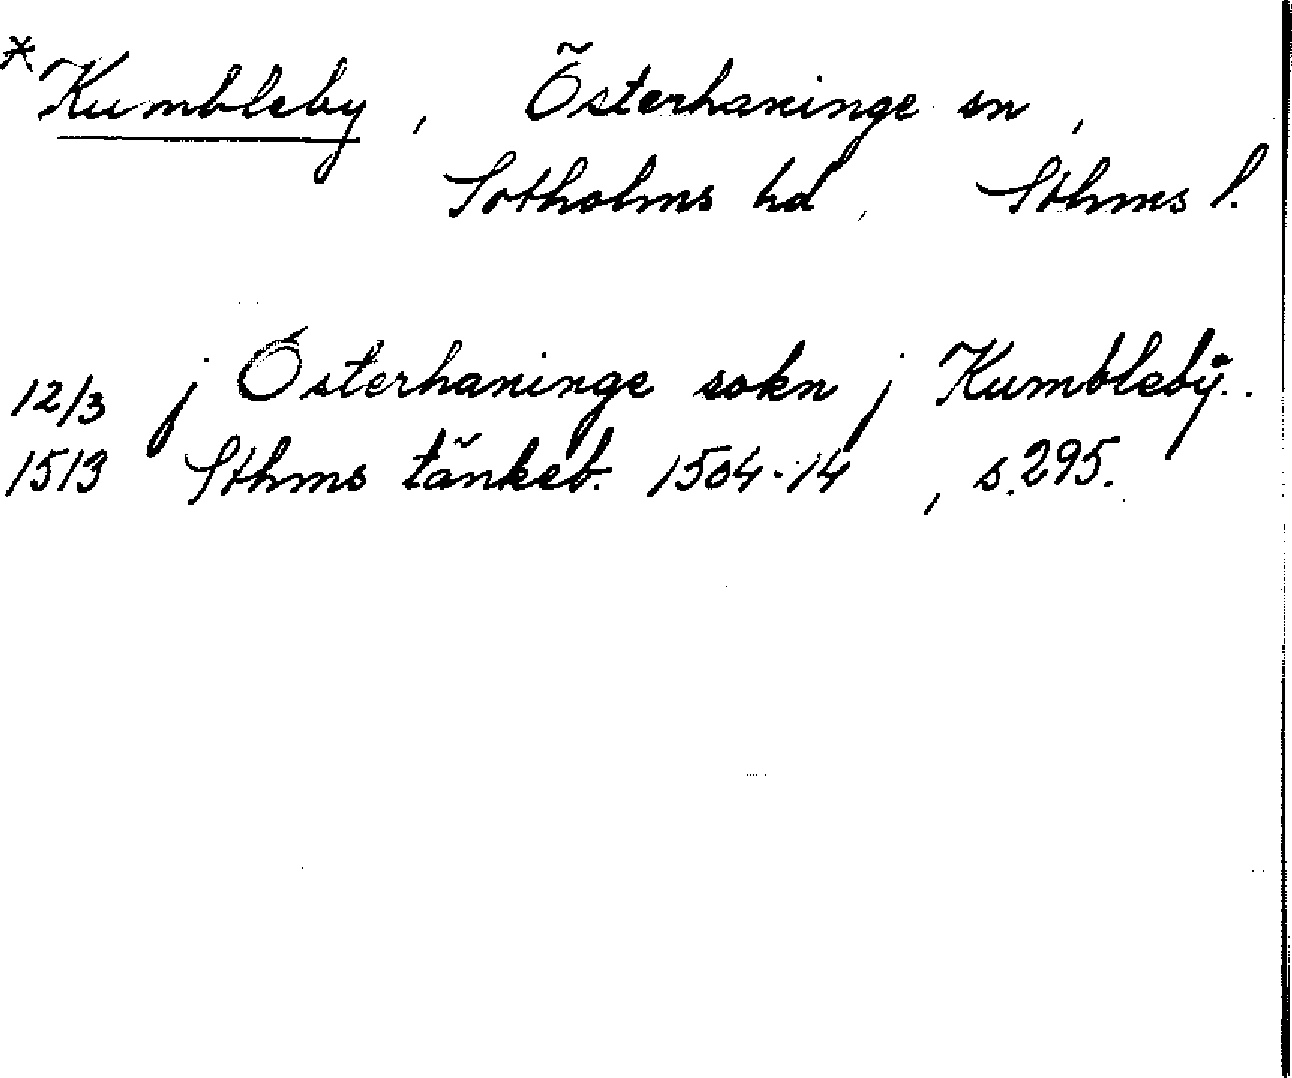 *Kumbleby, Österhaninge sn,
Sotholms hd, Sthms l.
12/3 j Österhaninge sokn j Kumblebÿ..
1513 Sthms tänkeb. 1504-14, s. 295.